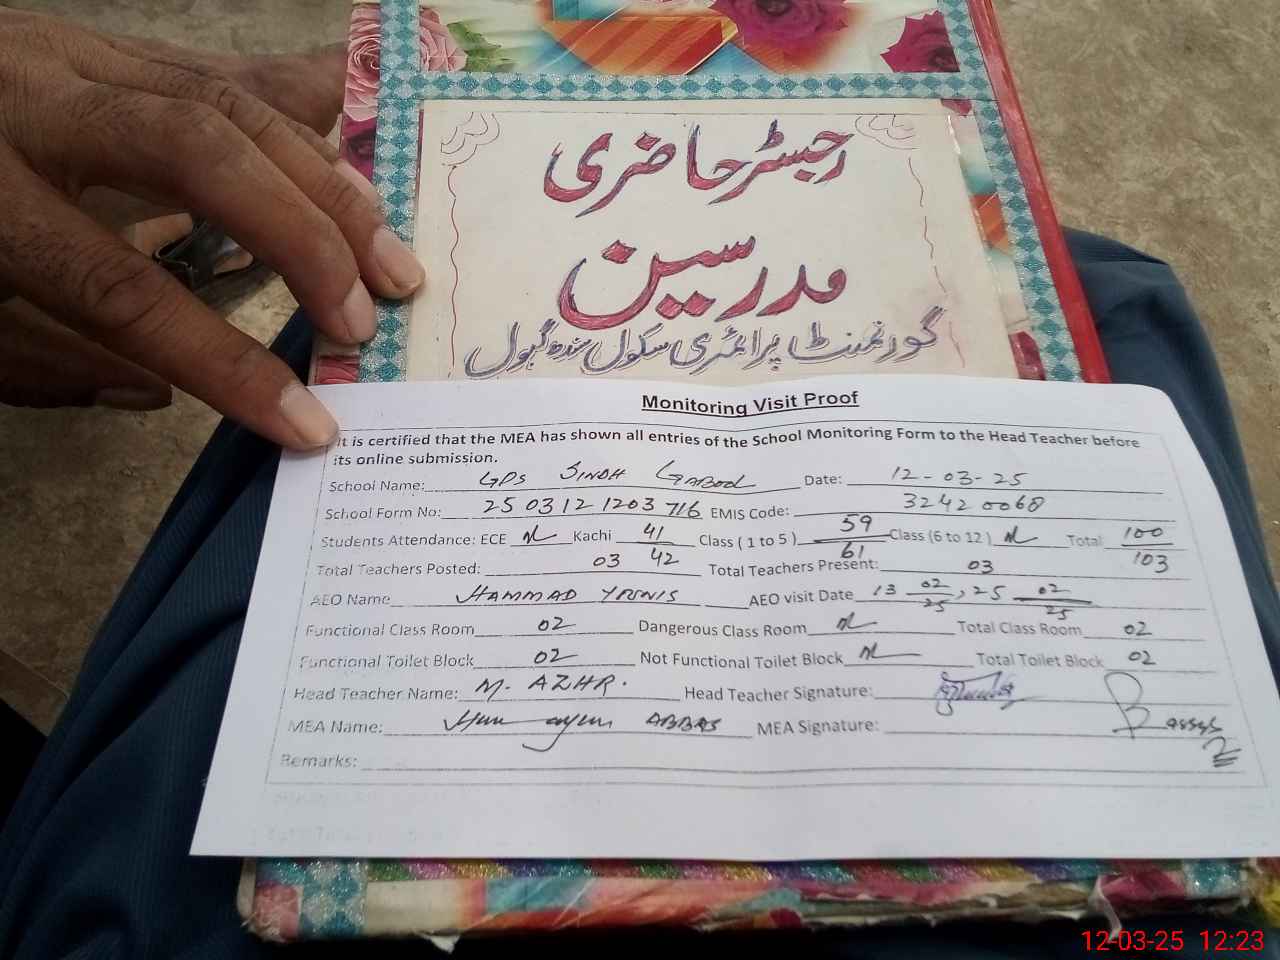 رجسٹر حاضری
مدرسین
گورنمنٹ پرائمری سکول سندھ گبول
Monitoring Visit Proof
It is certified that the MEA has shown all entries of the School Monitoring Form to the Head Teacher before
its online submission.
School Name: GPS SINDH GABOOL Date: 12-03-25
School Form No: 25 03 12 1203 716 EMIS Code: 32420068
Students Attendance: ECE Nil Kachi 41/42 Class ( 1 to 5 ) 59/61 Class (6 to 12 ) Nil Total 100/103
Total Teachers Posted: 03 Total Teachers Present: 03
AEO Name HAMMAD YOUNIS AEO visit Date 13 02/25, 25 02/25
Functional Class Room 02 Dangerous Class Room Nil Total Class Room 02
Functional Toilet Block 02 Not Functional Toilet Block Nil Total Toilet Block 02
Head Teacher Name: M. AZHR. Head Teacher Signature:
MEA Name: Humayun ABBAS MEA Signature:
Remarks:
12-03-25 12:23